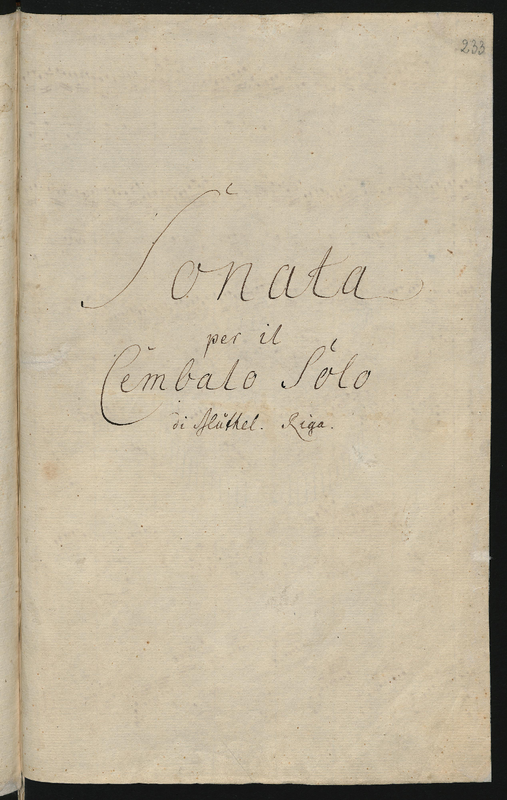 233
Sonata
per il
Cembalo Solo
di Müthel. Riga.